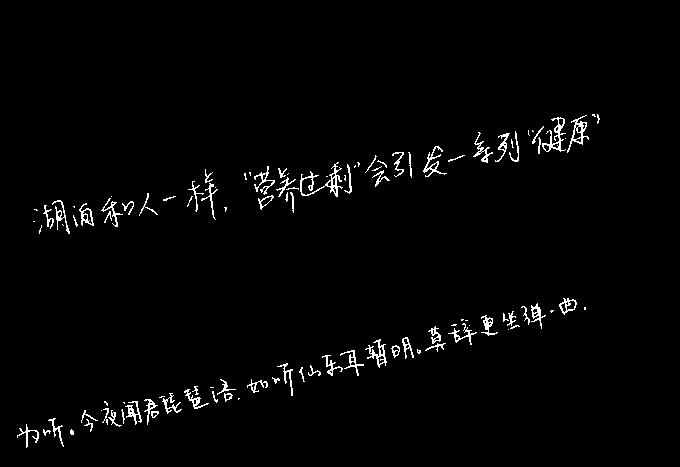 湖泊和人一样，“营养过剩”会引发一系列“健康”
为听。今夜闻君琵琶语，如听仙乐耳暂明。莫辞更坐弹一曲，